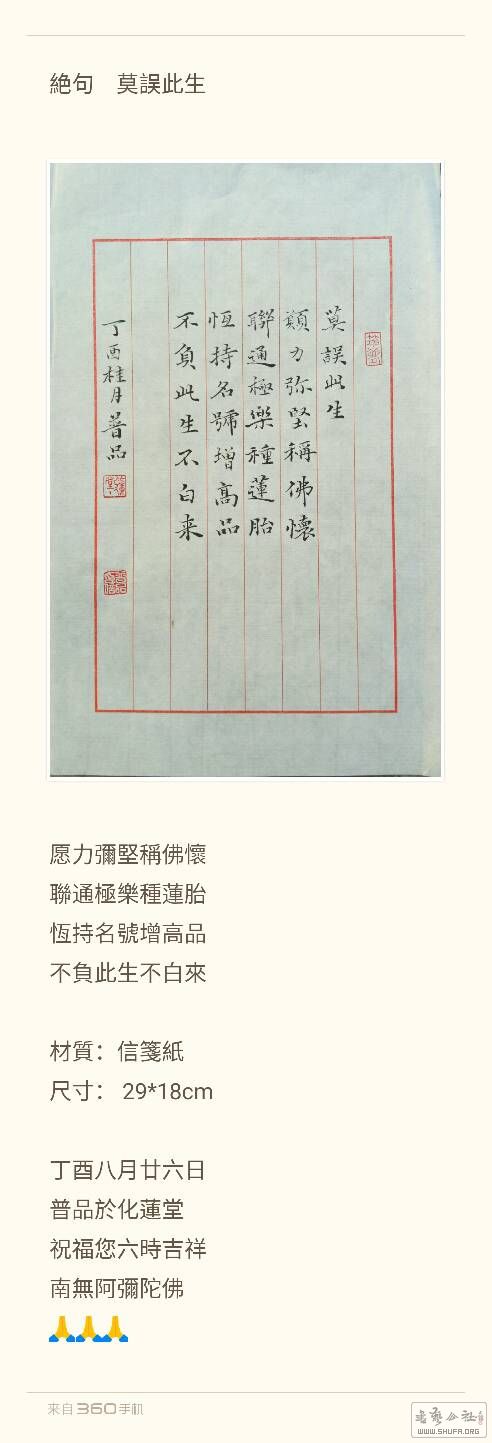 絶句　莫誤此生
莫誤此生
願力弥堅稱佛懷
聯通極樂種蓮胎
恆持名號增高品
不負此生不白来
丁酉桂月普品
愿力彌堅稱佛懷
聯通極樂種蓮胎
恆持名號增高品
不負此生不白來
材質：信箋紙
尺寸： 29*18cm
丁酉八月廿六日
普品於化蓮堂
祝福您六時吉祥
南無阿彌陀佛
来自360手机
書藝公社
WWW.SHUFA.ORG